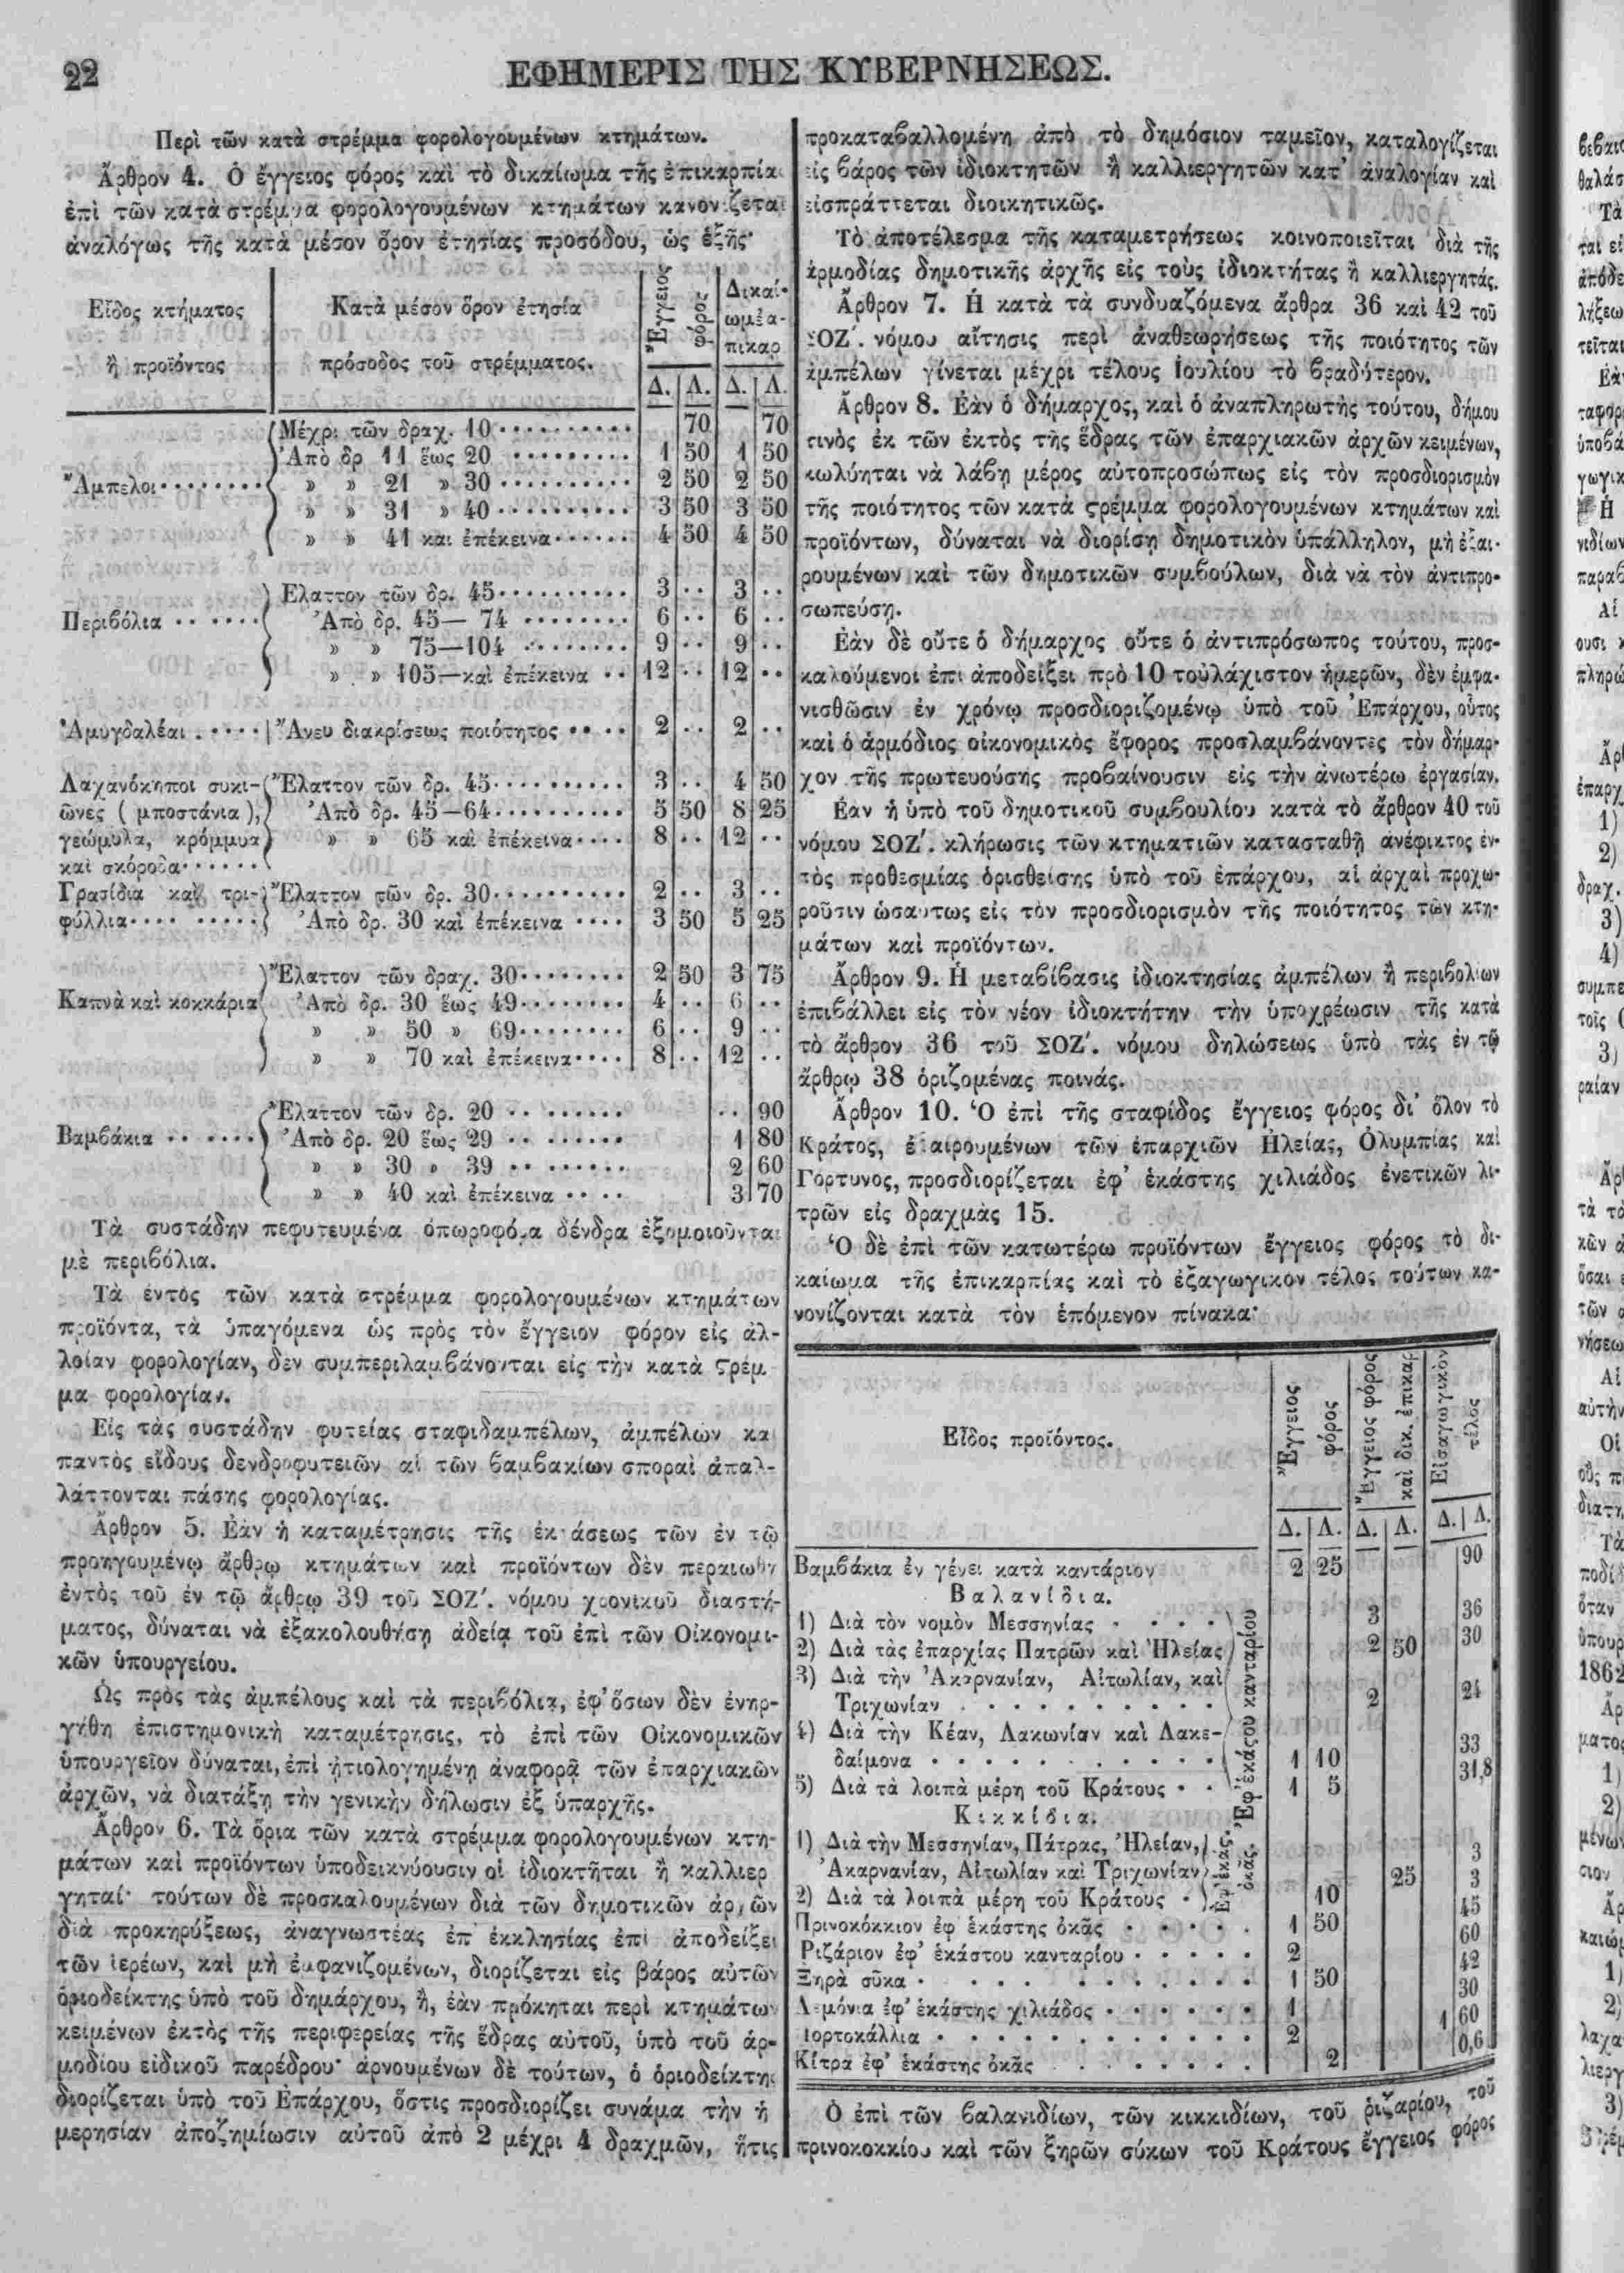 22
ΕΦΗΜΕΡΙΣ ΤΗΣ ΚΥΒΕΡΝΗΣΕΩΣ.
Περὶ τῶν κατὰ στρέμμα φορολογουμένων κτημάτων.
Ἄρθρον 4. Ὁ ἔγγειος φόρος καὶ τὸ δικαίωμα τῆς ἐπικαρπία
ἐπὶ τῶν κατὰ στρέμμα φορολογουμένων κτημάτων κανονίζεται
ἀναλόγως τῆς κατὰ μέσον ὅρον ἐτησίας προσόδου, ὡς ἑξῆς·
Εἶδος κτήματος ἢ προϊόντος | Κατὰ μέσον ὅρον ἐτησία πρόσοδος τοῦ στρέμματος. | Ἔγγειος φόρος | Δικαίωμ ἐπικαρ
Δ. Λ. Δ. Λ.
Ἄμπελοι
Μέχρι τῶν δραχ. 10 70 70
Ἀπὸ δρ 11 ἕως 20 1 50 1 50
» » 21 » 30 2 50 2 50
» » 31 » 40 3 50 3 50
» » 41 καὶ ἐπέκεινα 4 50 4 50
Περιβόλια
Ἔλαττον τῶν δρ. 45 3 .. 3 ..
Ἀπὸ δρ. 45— 74 6 .. 6 ..
» » 75—104 9 .. 9 ..
» » 105—καὶ ἐπέκεινα 12 .. 12 ..
Ἀμυγδαλέαι Ἄνευ διακρίσεως ποιότητος 2 .. 2 ..
Λαχανόκηποι συκιῶνες (μποστάνια), γεώμυλα, κρόμμυα καὶ σκόροδα
Ἔλαττον τῶν δρ. 45 3 .. 4 50
Ἀπὸ δρ. 45—64 5 50 8 25
» » 65 καὶ ἐπέκεινα 8 .. 12 ..
Γρασίδια καὶ τριφύλλια
Ἔλαττον τῶν δρ. 30 2 .. 3 ..
Ἀπὸ δρ. 30 καὶ ἐπέκεινα 3 50 5 25
Καπνὰ καὶ κοκκάρια
Ἔλαττον τῶν δραχ. 30 2 50 3 75
Ἀπὸ δρ. 30 ἕως 49 4 .. 6 ..
» » 50 » 69 6 .. 9 ..
» » 70 καὶ ἐπέκεινα 8 .. 12 ..
Βαμβάκια
Ἔλαττον τῶν δρ. 20 .. 90
Ἀπὸ δρ. 20 ἕως 29 1 80
» » 30 » 39 2 60
» » 40 καὶ ἐπέκεινα 3 70
Τὰ συστάδην πεφυτευμένα ὀπωροφόρα δένδρα ἐξομοιοῦνται
μὲ περιβόλια.
Τὰ ἐντὸς τῶν κατὰ στρέμμα φορολογουμένων κτημάτων
προϊόντα, τὰ ὑπαγόμενα ὡς πρὸς τὸν ἔγγειον φόρον εἰς ἀλ-
λοίαν φορολογίαν, δὲν συμπεριλαμβάνονται εἰς τὴν κατὰ ςρέμ
μα φορολογίαν.
Εἰς τὰς συστάδην φυτείας σταφιδαμπέλων, ἀμπέλων κα
παντὸς εἴδους δενδροφυτειῶν αἱ τῶν βαμβακίων σποραὶ ἀπαλ-
λάττονται πάσης φορολογίας.
Ἄρθρον 5. Ἐὰν ἡ καταμέτρησις τῆς ἐκτάσεως τῶν ἐν τῷ
προηγουμένῳ ἄρθρῳ κτημάτων καὶ προϊόντων δὲν περαιωθῇ
ἐντὸς τοῦ ἐν τῷ ἄρθρῳ 39 τοῦ ΣΟΖʹ. νόμου χρονικοῦ διαστή-
ματος, δύναται νὰ ἐξακολουθήσῃ ἀδείᾳ τοῦ ἐπὶ τῶν Οἰκονομι-
κῶν ὑπουργείου.
Ὡς πρὸς τὰς ἀμπέλους καὶ τὰ περιβόλια, ἐφ' ὅσων δὲν ἐνηρ-
γήθη ἐπιστημονικὴ καταμέτρησις, τὸ ἐπὶ τῶν Οἰκονομικῶν
ὑπουργεῖον δύναται, ἐπὶ ᾐτιολογημένῃ ἀναφορᾷ τῶν ἐπαρχιακῶν
ἀρχῶν, νὰ διατάξῃ τὴν γενικὴν δήλωσιν ἐξ ὑπαρχῆς.
Ἄρθρον 6. Τὰ ὅρια τῶν κατὰ στρέμμα φορολογουμένων κτη-
μάτων καὶ προϊόντων ὑποδεικνύουσιν οἱ ἰδιοκτῆται ἢ καλλιερ
γηταί· τούτων δὲ προσκαλουμένων διὰ τῶν δημοτικῶν ἀρχῶν
διὰ προκηρύξεως, ἀναγνωστέας ἐπ' ἐκκλησίας ἐπὶ ἀποδείξει
τῶν ἱερέων, καὶ μὴ ἐμφανιζομένων, διορίζεται εἰς βάρος αὐτῶν
ὁριοδείκτης ὑπὸ τοῦ δημάρχου, ἢ, ἐὰν πρόκηται περὶ κτημάτων
κειμένων ἐκτὸς τῆς περιφερείας τῆς ἕδρας αὐτοῦ, ὑπὸ τοῦ ἁρ-
μοδίου εἰδικοῦ παρέδρου· ἀρνουμένων δὲ τούτων, ὁ ὁριοδείκτης
διορίζεται ὑπὸ τοῦ Ἐπάρχου, ὅστις προσδιορίζει συνάμα τὴν ἡ
μερησίαν ἀποζημίωσιν αὐτοῦ ἀπὸ 2 μέχρι 4 δραχμῶν, ἥτις
προκαταβαλλομένη ἀπὸ τὸ δημόσιον ταμεῖον, καταλογίζεται
εἰς βάρος τῶν ἰδιοκτητῶν ἢ καλλιεργητῶν κατ' ἀναλογίαν καὶ
εἰσπράττεται διοικητικῶς.
Τὸ ἀποτέλεσμα τῆς καταμετρήσεως κοινοποιεῖται διὰ τῆς
ἁρμοδίας δημοτικῆς ἀρχῆς εἰς τοὺς ἰδιοκτήτας ἢ καλλιεργητάς.
Ἄρθρον 7. Ἡ κατὰ τὰ συνδυαζόμενα ἄρθρα 36 καὶ 42 τοῦ
ΣΟΖʹ. νόμου αἴτησις περὶ ἀναθεωρήσεως τῆς ποιότητος τῶν
ἀμπέλων γίνεται μέχρι τέλους Ἰουλίου τὸ βραδύτερον.
Ἄρθρον 8. Ἐὰν ὁ δήμαρχος, καὶ ὁ ἀναπληρωτὴς τούτου, δήμου
τινὸς ἐκ τῶν ἐκτὸς τῆς ἕδρας τῶν ἐπαρχιακῶν ἀρχῶν κειμένων,
κωλύηται νὰ λάβῃ μέρος αὐτοπροσώπως εἰς τὸν προσδιορισμὸν
τῆς ποιότητος τῶν κατὰ ςρέμμα φορολογουμένων κτημάτων καὶ
προϊόντων, δύναται νὰ διορίσῃ δημοτικὸν ὑπάλληλον, μὴ ἐξαι-
ρουμένων καὶ τῶν δημοτικῶν συμβούλων, διὰ νὰ τὸν ἀντιπρο-
σωπεύσῃ.
Ἐὰν δὲ οὔτε ὁ δήμαρχος οὔτε ὁ ἀντιπρόσωπος τούτου, προσ-
καλούμενοι ἐπὶ ἀποδείξει πρὸ 10 τοὐλάχιστον ἡμερῶν, δὲν ἐμφα-
νισθῶσιν ἐν χρόνῳ προσδιοριζομένῳ ὑπὸ τοῦ Ἐπάρχου, οὗτος
καὶ ὁ ἁρμόδιος οἰκονομικὸς ἔφορος προσλαμβάνοντες τὸν δήμαρ-
χον τῆς πρωτευούσης προβαίνουσιν εἰς τὴν ἀνωτέρω ἐργασίαν.
Ἐὰν ἡ ὑπὸ τοῦ δημοτικοῦ συμβουλίου κατὰ τὸ ἄρθρον 40 τοῦ
νόμου ΣΟΖʹ. κλήρωσις τῶν κτηματιῶν κατασταθῇ ἀνέφικτος ἐν-
τὸς προθεσμίας ὁρισθείσης ὑπὸ τοῦ ἐπάρχου, αἱ ἀρχαὶ προχω-
ροῦσιν ὡσαύτως εἰς τὸν προσδιορισμὸν τῆς ποιότητος τῶν κτη-
μάτων καὶ προϊόντων.
Ἄρθρον 9. Ἡ μεταβίβασις ἰδιοκτησίας ἀμπέλων ἢ περιβολίων
ἐπιβάλλει εἰς τὸν νέον ἰδιοκτήτην τὴν ὑποχρέωσιν τῆς κατὰ
τὸ ἄρθρον 36 τοῦ ΣΟΖʹ. νόμου δηλώσεως ὑπὸ τὰς ἐν τῷ
ἄρθρῳ 38 ὁριζομένας ποινάς.
Ἄρθρον 10. Ὁ ἐπὶ τῆς σταφίδος ἔγγειος φόρος δι' ὅλον τὸ
Κράτος, ἐξαιρουμένων τῶν ἐπαρχιῶν Ἠλείας, Ὀλυμπίας καὶ
Γόρτυνος, προσδιορίζεται ἐφ' ἑκάστης χιλιάδος ἐνετικῶν λι-
τρῶν εἰς δραχμὰς 15.
Ὁ δὲ ἐπὶ τῶν κατωτέρω προϊόντων ἔγγειος φόρος τὸ δι-
καίωμα τῆς ἐπικαρπίας καὶ τὸ ἐξαγωγικὸν τέλος τούτων κα-
νονίζονται κατὰ τὸν ἑπόμενον πίνακα·
Εἶδος προϊόντος. | Ἔγγειος φόρος | Ἔγγειος φόρος καὶ δικ. ἐπικαρ | Εἰσαγωγικὸν τέλος
Δ. Λ. Δ. Λ. Δ. Λ.
Βαμβάκια ἐν γένει κατὰ καντάριον 2 25 90
Βαλανίδια.
1) Διὰ τὸν νομὸν Μεσσηνίας 3 36
2) Διὰ τὰς ἐπαρχίας Πατρῶν καὶ Ἠλείας 2 50 30
3) Διὰ τὴν Ἀκαρνανίαν, Αἰτωλίαν, καὶ
Τριχωνίαν 2 24
4) Διὰ τὴν Κέαν, Λακωνίαν καὶ Λακε-
δαίμονα 1 10 33
5) Διὰ τὰ λοιπὰ μέρη τοῦ Κράτους 1 5 31,8
Ἐφ' ἑκάςου κανταρίου
Κικκίδια.
1) Διὰ τὴν Μεσσηνίαν, Πάτρας, Ἠλείαν,
Ἀκαρνανίαν, Αἰτωλίαν καὶ Τριχωνίαν 25 3
2) Διὰ τὰ λοιπὰ μέρη τοῦ Κράτους 10 3
Ἐφ' ἑκάς. ὀκᾶς.
Πρινοκόκκιον ἐφ' ἑκάστης ὀκᾶς 1 50 45
Ριζάριον ἐφ' ἑκάστου κανταρίου 2 60
Ξηρὰ σῦκα 1 50 42
Λεμόνια ἐφ' ἑκάστης χιλιάδος 1 30
Πορτοκάλλια 2 1 60
Κίτρα ἐφ' ἑκάστης ὀκᾶς 2 0,6
Ὁ ἐπὶ τῶν βαλανιδίων, τῶν κικκιδίων, τοῦ ῥιζαρίου, τοῦ
πρινοκοκκίου καὶ τῶν ξηρῶν σύκων τοῦ Κράτους ἔγγειος φόρος